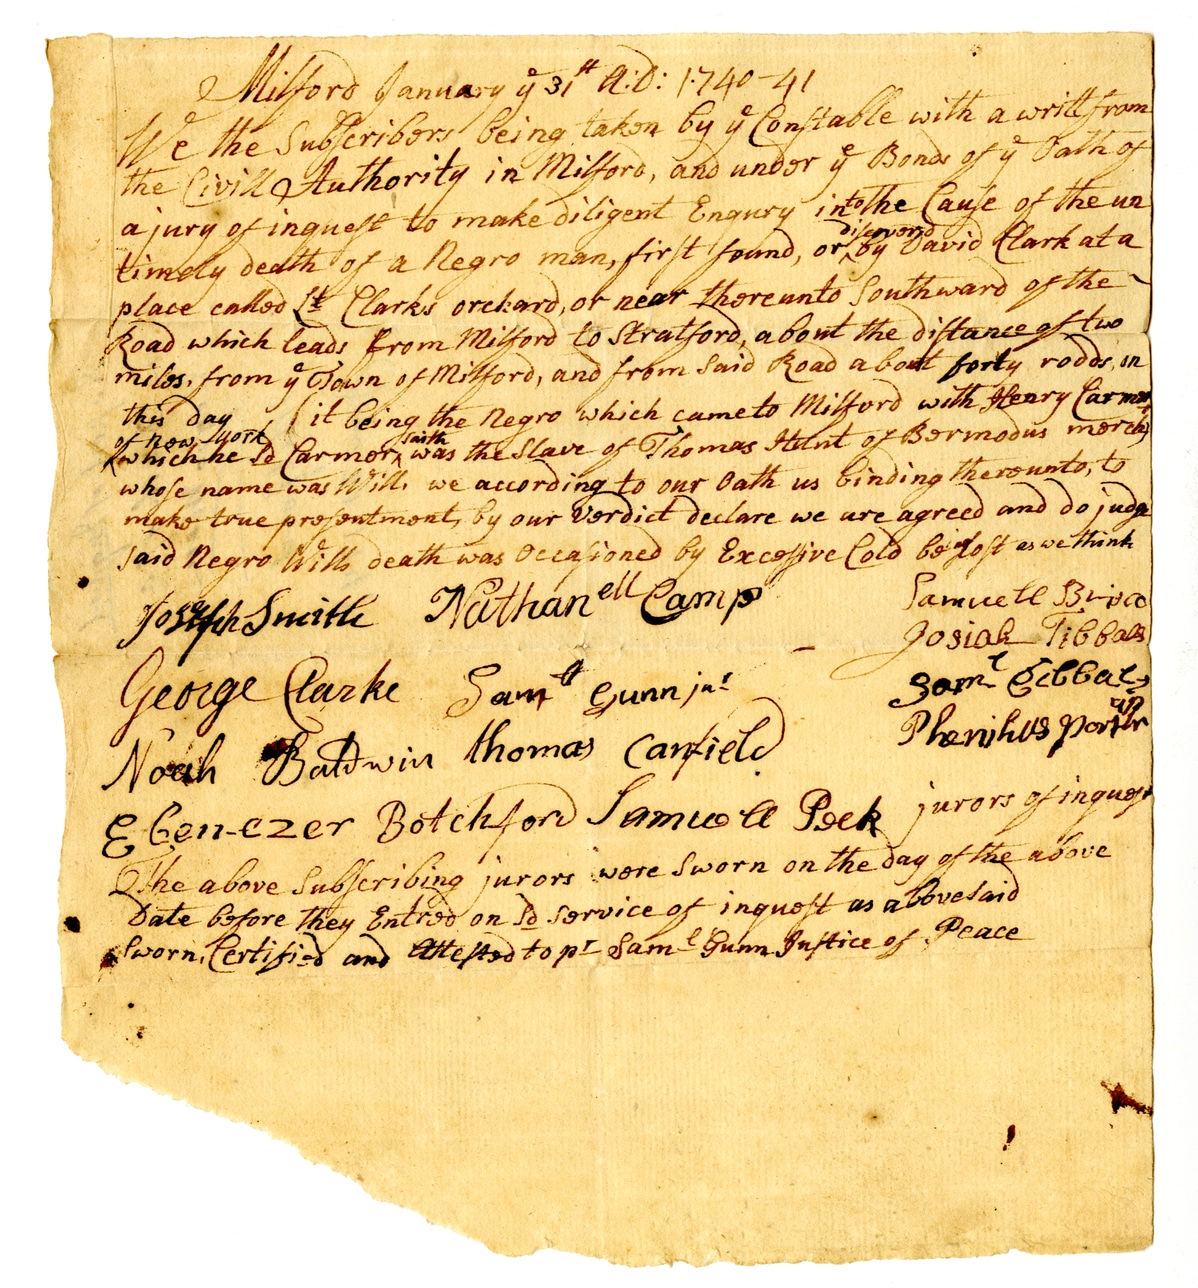 Milford January ye 31st A:D: 1740-41
We the Subscribers being taken by ye Constable with a writt from
the Civill Authority in Milford, and under ye Bonds of ye Oath of
a jury of inquest to make diligent Enqury into the Cause of the un
timely death of a Negro man, first found, or discovered by David Clark at a
place called Lt Clarks orchard, or near thereunto Southward of the
Road which leads from Milford to Stratford, about the distance of two
miles, from ye Town of Milford, and from Said Road about forty rodds, on
this day (it being the Negro which came to Milford with Henry Carmer
of New york
which he sd Carmer, saith was the Slave of Thomas Hunt of Bermodus merch)
whose name was Will, we according to our Oath us binding thereunto, to
make true presentment, by our Verdict declare we are agreed and do judge
said Negro Wills death was Occasioned by Excessive Cold be frost as we think
Joseph Smith Nathanell Camp Samuell Brisco
Josiah Tibbals
George Clarke Samll Gunn junr Saml Tibbals
Noah Baldwin thomas Canfield Phenihas porter
Ebenezer Botchford Samuell Peck jurors of inquest
The above Subscribing jurors were Sworn on the day of the above
Date before they Entred on sd service of inquest as abovesaid
Sworn, Certified and Attested to pr Saml Gunn Justice of Peace